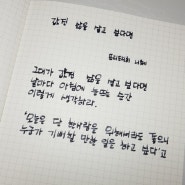 값진 삶을 살고 싶다면
프리드리히 니체
그대가 값진 삶을 살고 싶다면
날마다 아침에 눈뜨는 순간
이렇게 생각하라.
'오늘은 단 한사람을 위해서라도 좋으니
누군가 기뻐할 만한 일을 하고 싶다'고